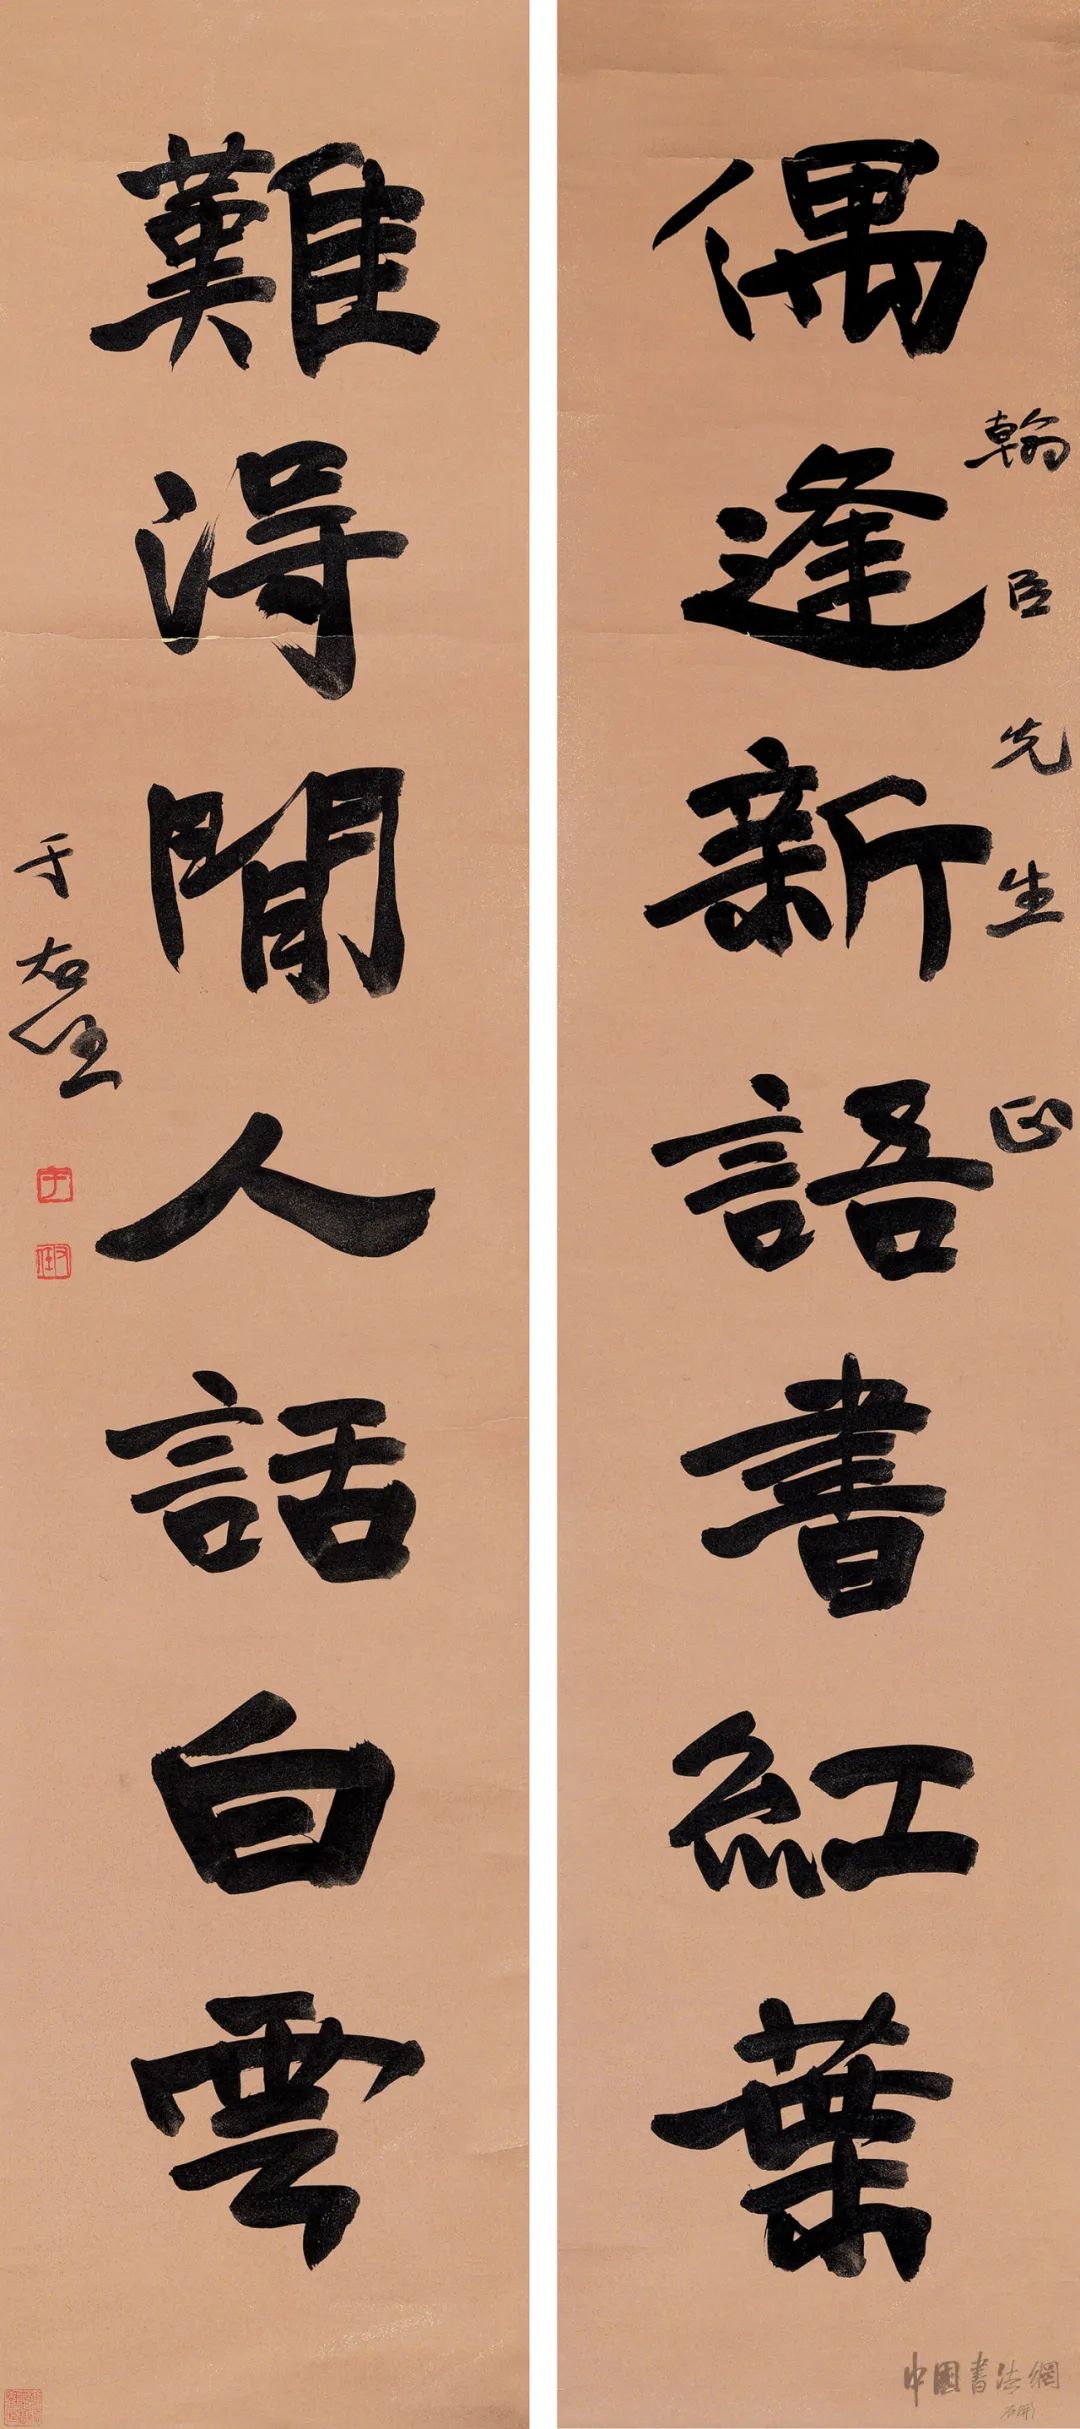 翰臣先生正
偶逢新語書紅葉
難得閒人話白雲
于右任
中國書法網